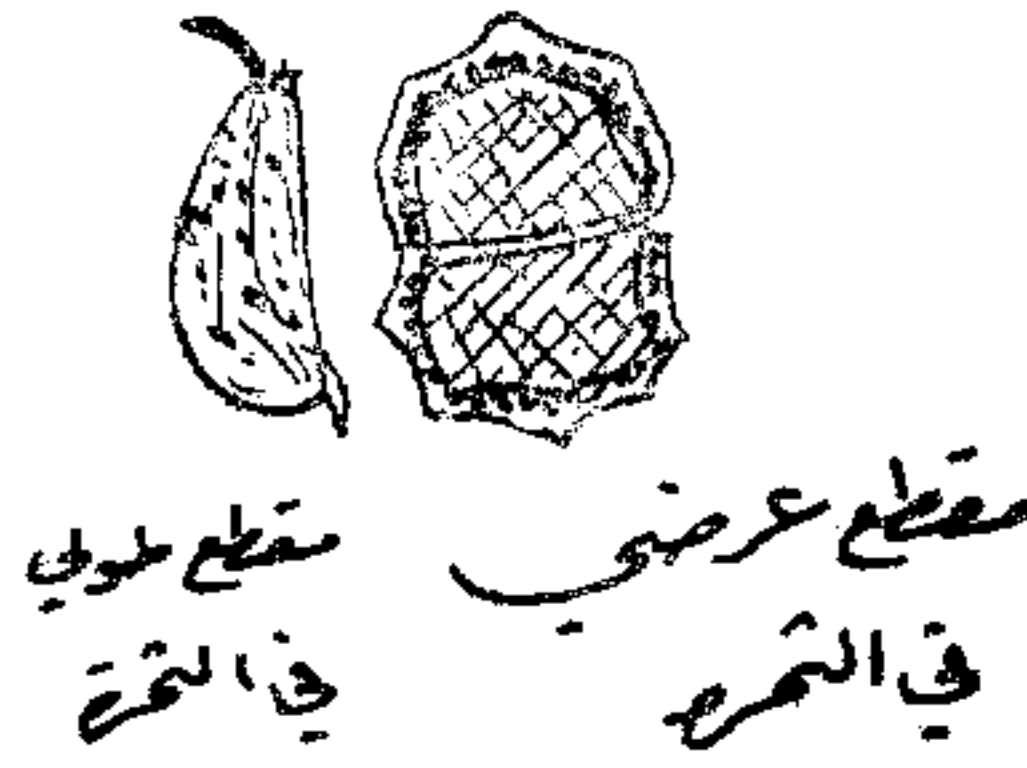 مقطع عرضي
في الثمره
مقطع طولي
في الثمرة